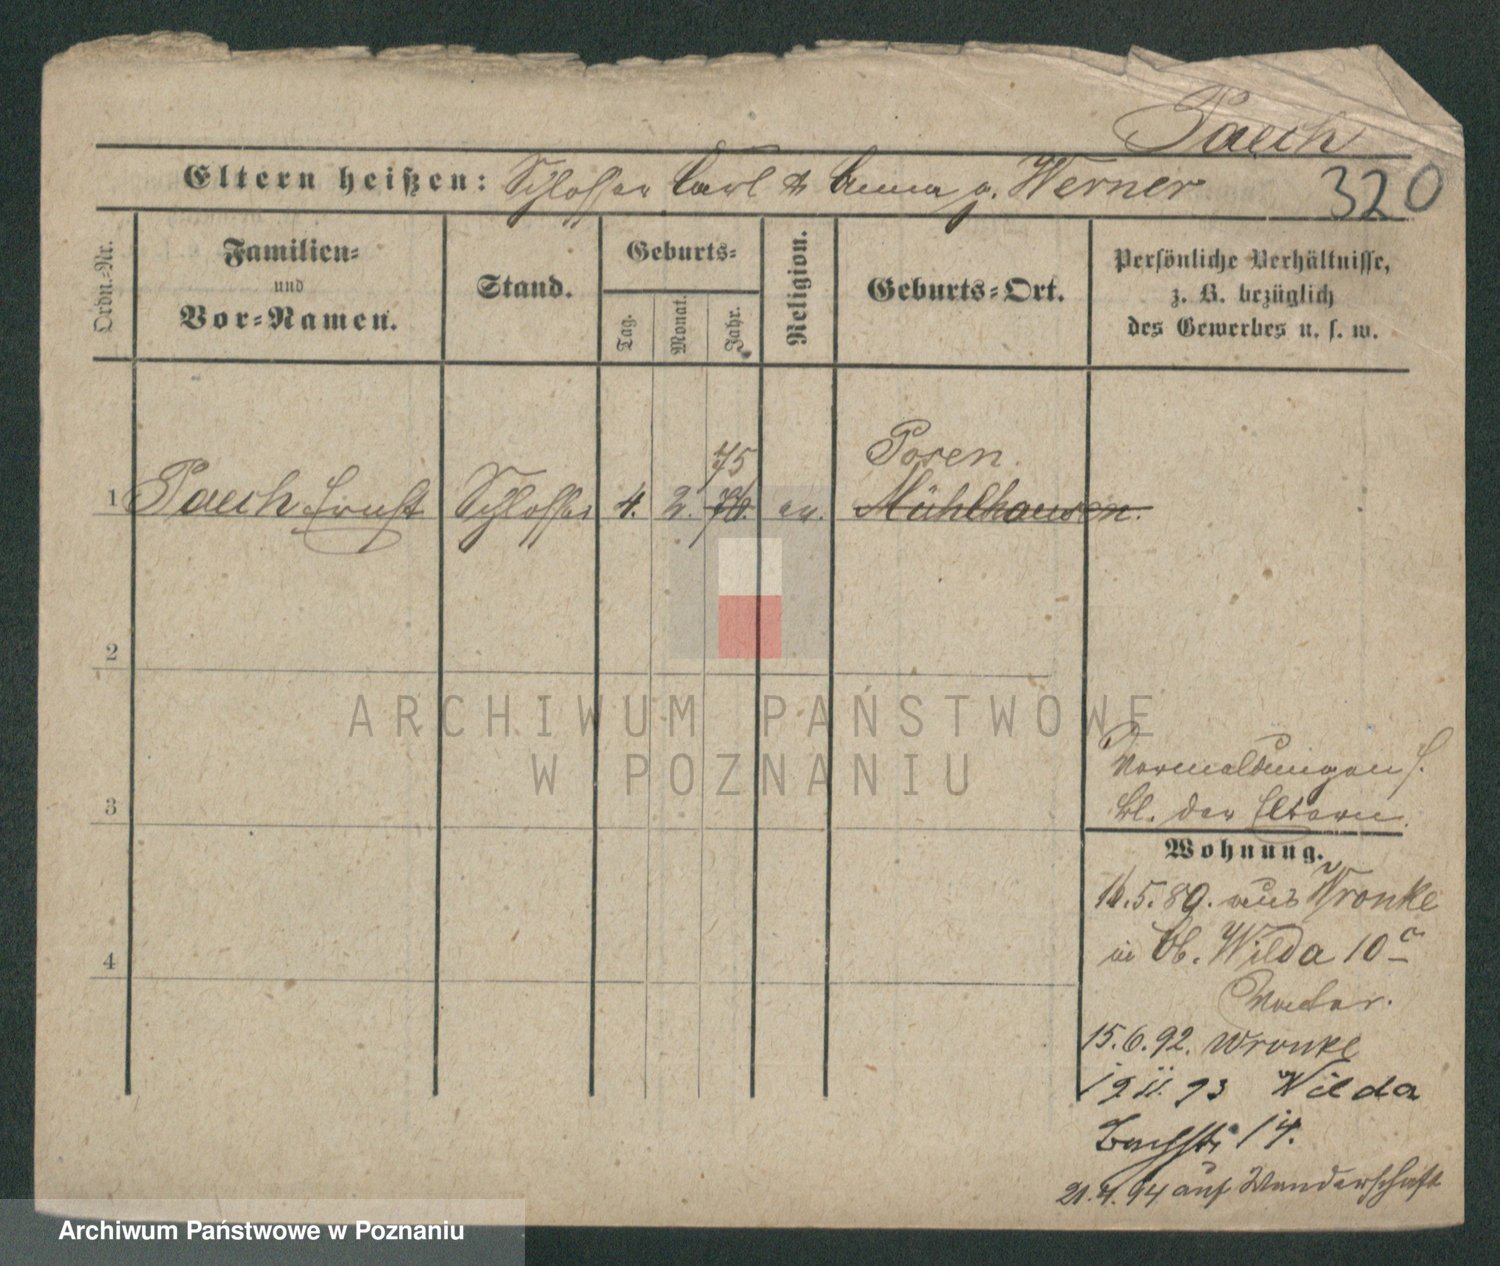 Paech
Eltern heißen: Schlosser Carl & Anna g. Werner
320
Ordn.-Nr.
Familien-
und
Vor-Namen.
Stand.
Geburts-
Tag.
Monat.
Jahr.
Religion.
Geburts-Ort.
Persönliche Verhältnisse,
z. B. bezüglich
des Gewerbes u. s. w.
75
Posen
1 Paech Ernst Schlosser 4. 2. 76. ev. Mühlhausen.
2
3
4
ARCHIWUM PAŃSTWOWE
W POZNANIU
Vermeldungen s.
bl. der Eltern.
Wohnung.
16.5.89. aus Wronke
in Ob. Wilda 10a
Vater.
15.6.92. Wronke
19 11. 93 Wilda
Bachstr 14.
21.4.94 auf Wanderschaft
Archiwum Państwowe w Poznaniu